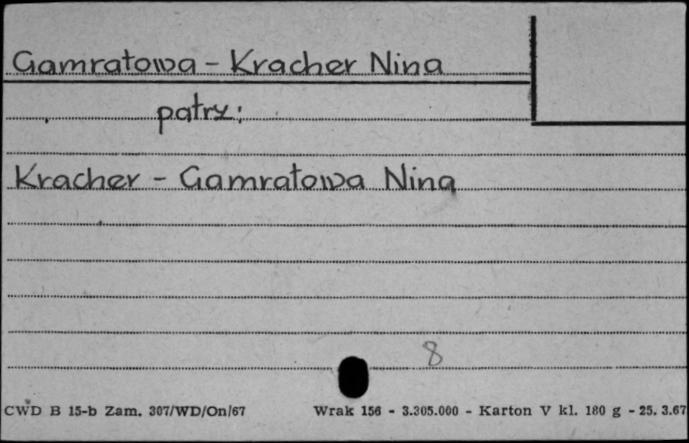 Gamratowa - Kracher Nina
patrz:
Kracher - Gamratowa Nina
8
CWD B 15-b Zam. 307/WD/On/67 Wrak 156 - 3.305.000 - Karton V kl. 180 g - 25. 3.67